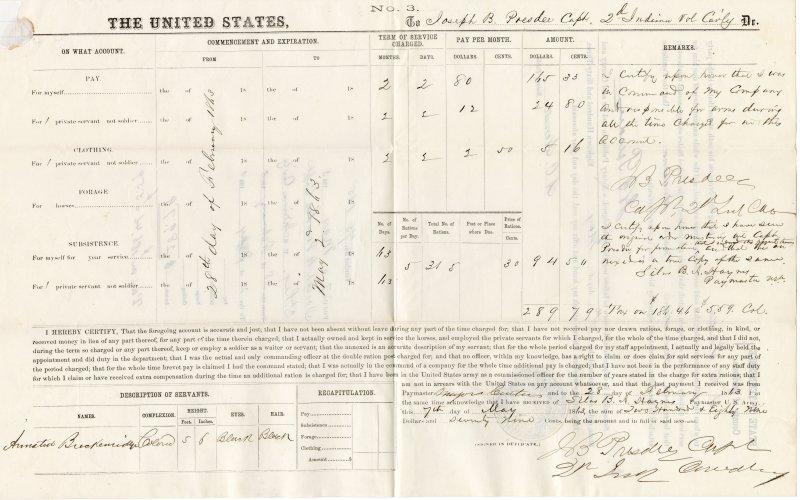 No. 3.
THE UNITED STATES, To Joseph B. Presdee Capt. 2d Indiana Vol Cav'ly Dr.
ON WHAT ACCOUNT. COMMENCEMENT AND EXPIRATION. TERM OF SERVICE CHARGED. PAY PER MONTH. AMOUNT. REMARKS.
FROM TO MONTHS. DAYS. DOLLARS. CENTS. DOLLARS. CENTS.
PAY.
For myself the of 18 the of 18 2 2 80 165 33
For 1 private servant not soldier the of 18 the of 18 2 2 12 24 80
CLOTHING.
For 1 private servant not soldier the of 18 the of 18 2 2 2 50 5 16
FORAGE
For horses the of 18 the of 18
28th day of February 1863
May 2nd 1863.
No. of Days. No. of Rations per Day. Total No. of Rations. Post or Place where Due. Price of Rations. Cents.
SUBSISTENCE.
For myself for year service the of 18 the of 18 63
5 315 30 94 50
For 1 private servant not soldier the of 18 the of 18 63
289 79 Tax on $186.46 $5.59. Col.
I certify upon honor that I was
in Command of My Company
and responsible for arms during
all the time Charged for in this
account.
J B Presdee
Capt 2d Ind Cav
I certify upon honor that I have seen
the original
is a true Copy of the same
Silas B. A. Haynes
Paymaster
I HEREBY CERTIFY, That the foregoing account is accurate and just; that I have not been absent without leave during any part of the time charged for; that I have not received pay nor drawn rations, forage, or clothing, in kind, or
received money in lieu of any part thereof, for any part of the time therein charged; that I actually owned and kept in service the horses, and employed the private servants for which I charged, for the whole of the time charged, and that I did not,
during the term so charged or any part thereof, keep or employ a soldier as a waiter or servant; that the annexed is an accurate description of my servant; that for the whole period charged for my staff appointment, I actually and legally held the
appointment and did duty in the department; that I was the actual and only commanding officer at the double ration post charged for; and that no officer, within my knowledge, has a right to claim or does claim for said services for any part of
the period charged; that for the whole time brevet pay is claimed I had the command stated; that I was actually in the command of a company for the whole time additional pay is charged; that I have not been in the performance of any staff duty
for which I claim or have received extra compensation during the time an additional ration is charged for; that I have been in the United States army as a commissioned officer for the number of years stated in the charge for extra rations; that I
am not in arrears with the United States on any account whatsoever, and that the last payment I received was from
Paymaster Major and to the 28 day of February 1863. I at
the same time acknowledge that I have RECEIVED of Silas B. A. Haynes Paymaster U.S. Army,
this 7th day of May 1863, the sum of Two Hundred & Eighty Nine
Dollars and Seventy Nine Cents, being the amount and in full of said account.
[SIGNED IN DUPLICATE.]
J B Presdee Capt
2d Ind Cavalry
DESCRIPTION OF SERVANTS.
NAMES. COMPLEXION. HEIGHT. EYES. HAIR.
Feet. Inches.
Armsted Breckenridge Colored 5 6 Black Black
RECAPITULATION.
Pay
Subsistence
Forage
Clothing
Amount $